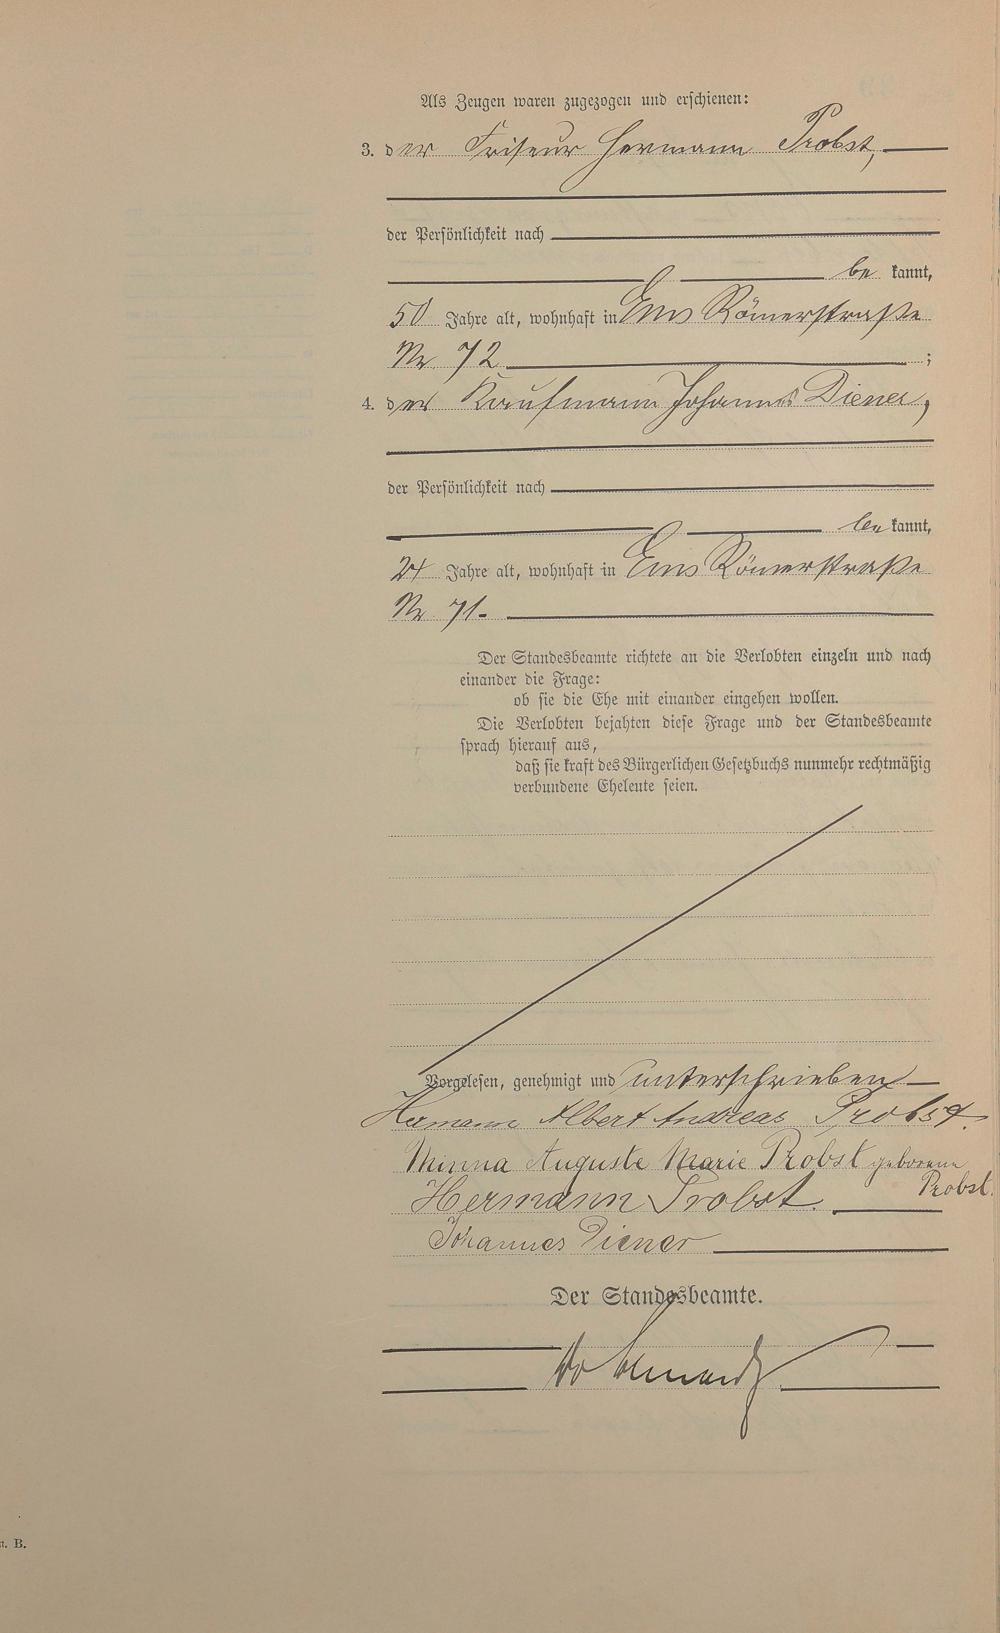 Als Zeugen waren zugezogen und erschienen:
3. der Friseur Hermann Probst,
der Persönlichkeit nach
be kannt,
50 Jahre alt, wohnhaft in Ems Römerstraße
Nr 72 ;
4. der Kaufmann Johannes Diener,
der Persönlichkeit nach
be kannt,
24 Jahre alt, wohnhaft in Ems Römerstraße
Nr 71.
Der Standesbeamte richtete an die Verlobten einzeln und nach
einander die Frage:
ob sie die Ehe mit einander eingehen wollen.
Die Verlobten bejahten diese Frage und der Standesbeamte
sprach hierauf aus,
daß sie kraft des Bürgerlichen Gesetzbuchs nunmehr rechtmäßig
verbundene Eheleute seien.
Vorgelesen, genehmigt und unterschrieben
Hermann Albert Andreas Probst.
Minna Auguste Marie Probst geborene
Probst.
Hermann Probst.
Johannes Diener
Der Standesbeamte.
B.